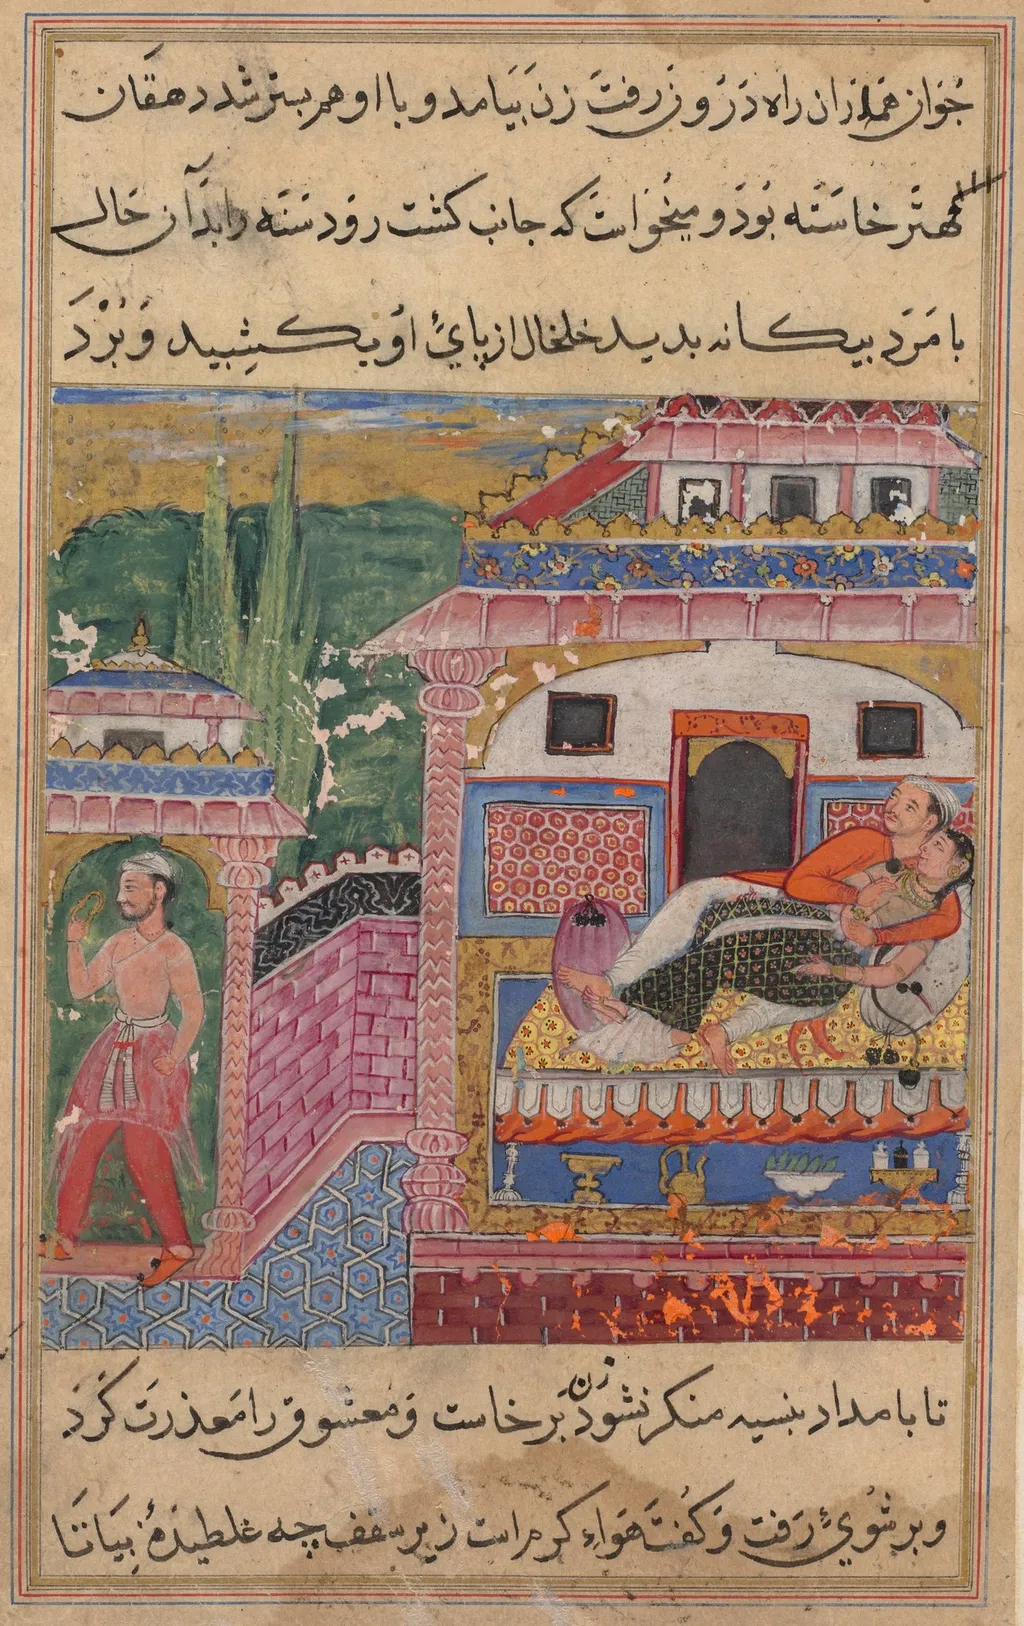 جوان همدران راه درون رفت زن بیامد و با او همبستر شد دهقان
مهتر خاسته بود و میخواست که جانب کشت رود سنه را بدان حال
با مرد بیگانه بدید خلخال از پای او بکشید و ببرد
تا بامداد بنسیه منکر نشود زن برخاست و معشوق را معذرت کرد
و بر شوی رفت و گفت هواء گرم است زیر سقف چه غلطیدهٔ بیا تا